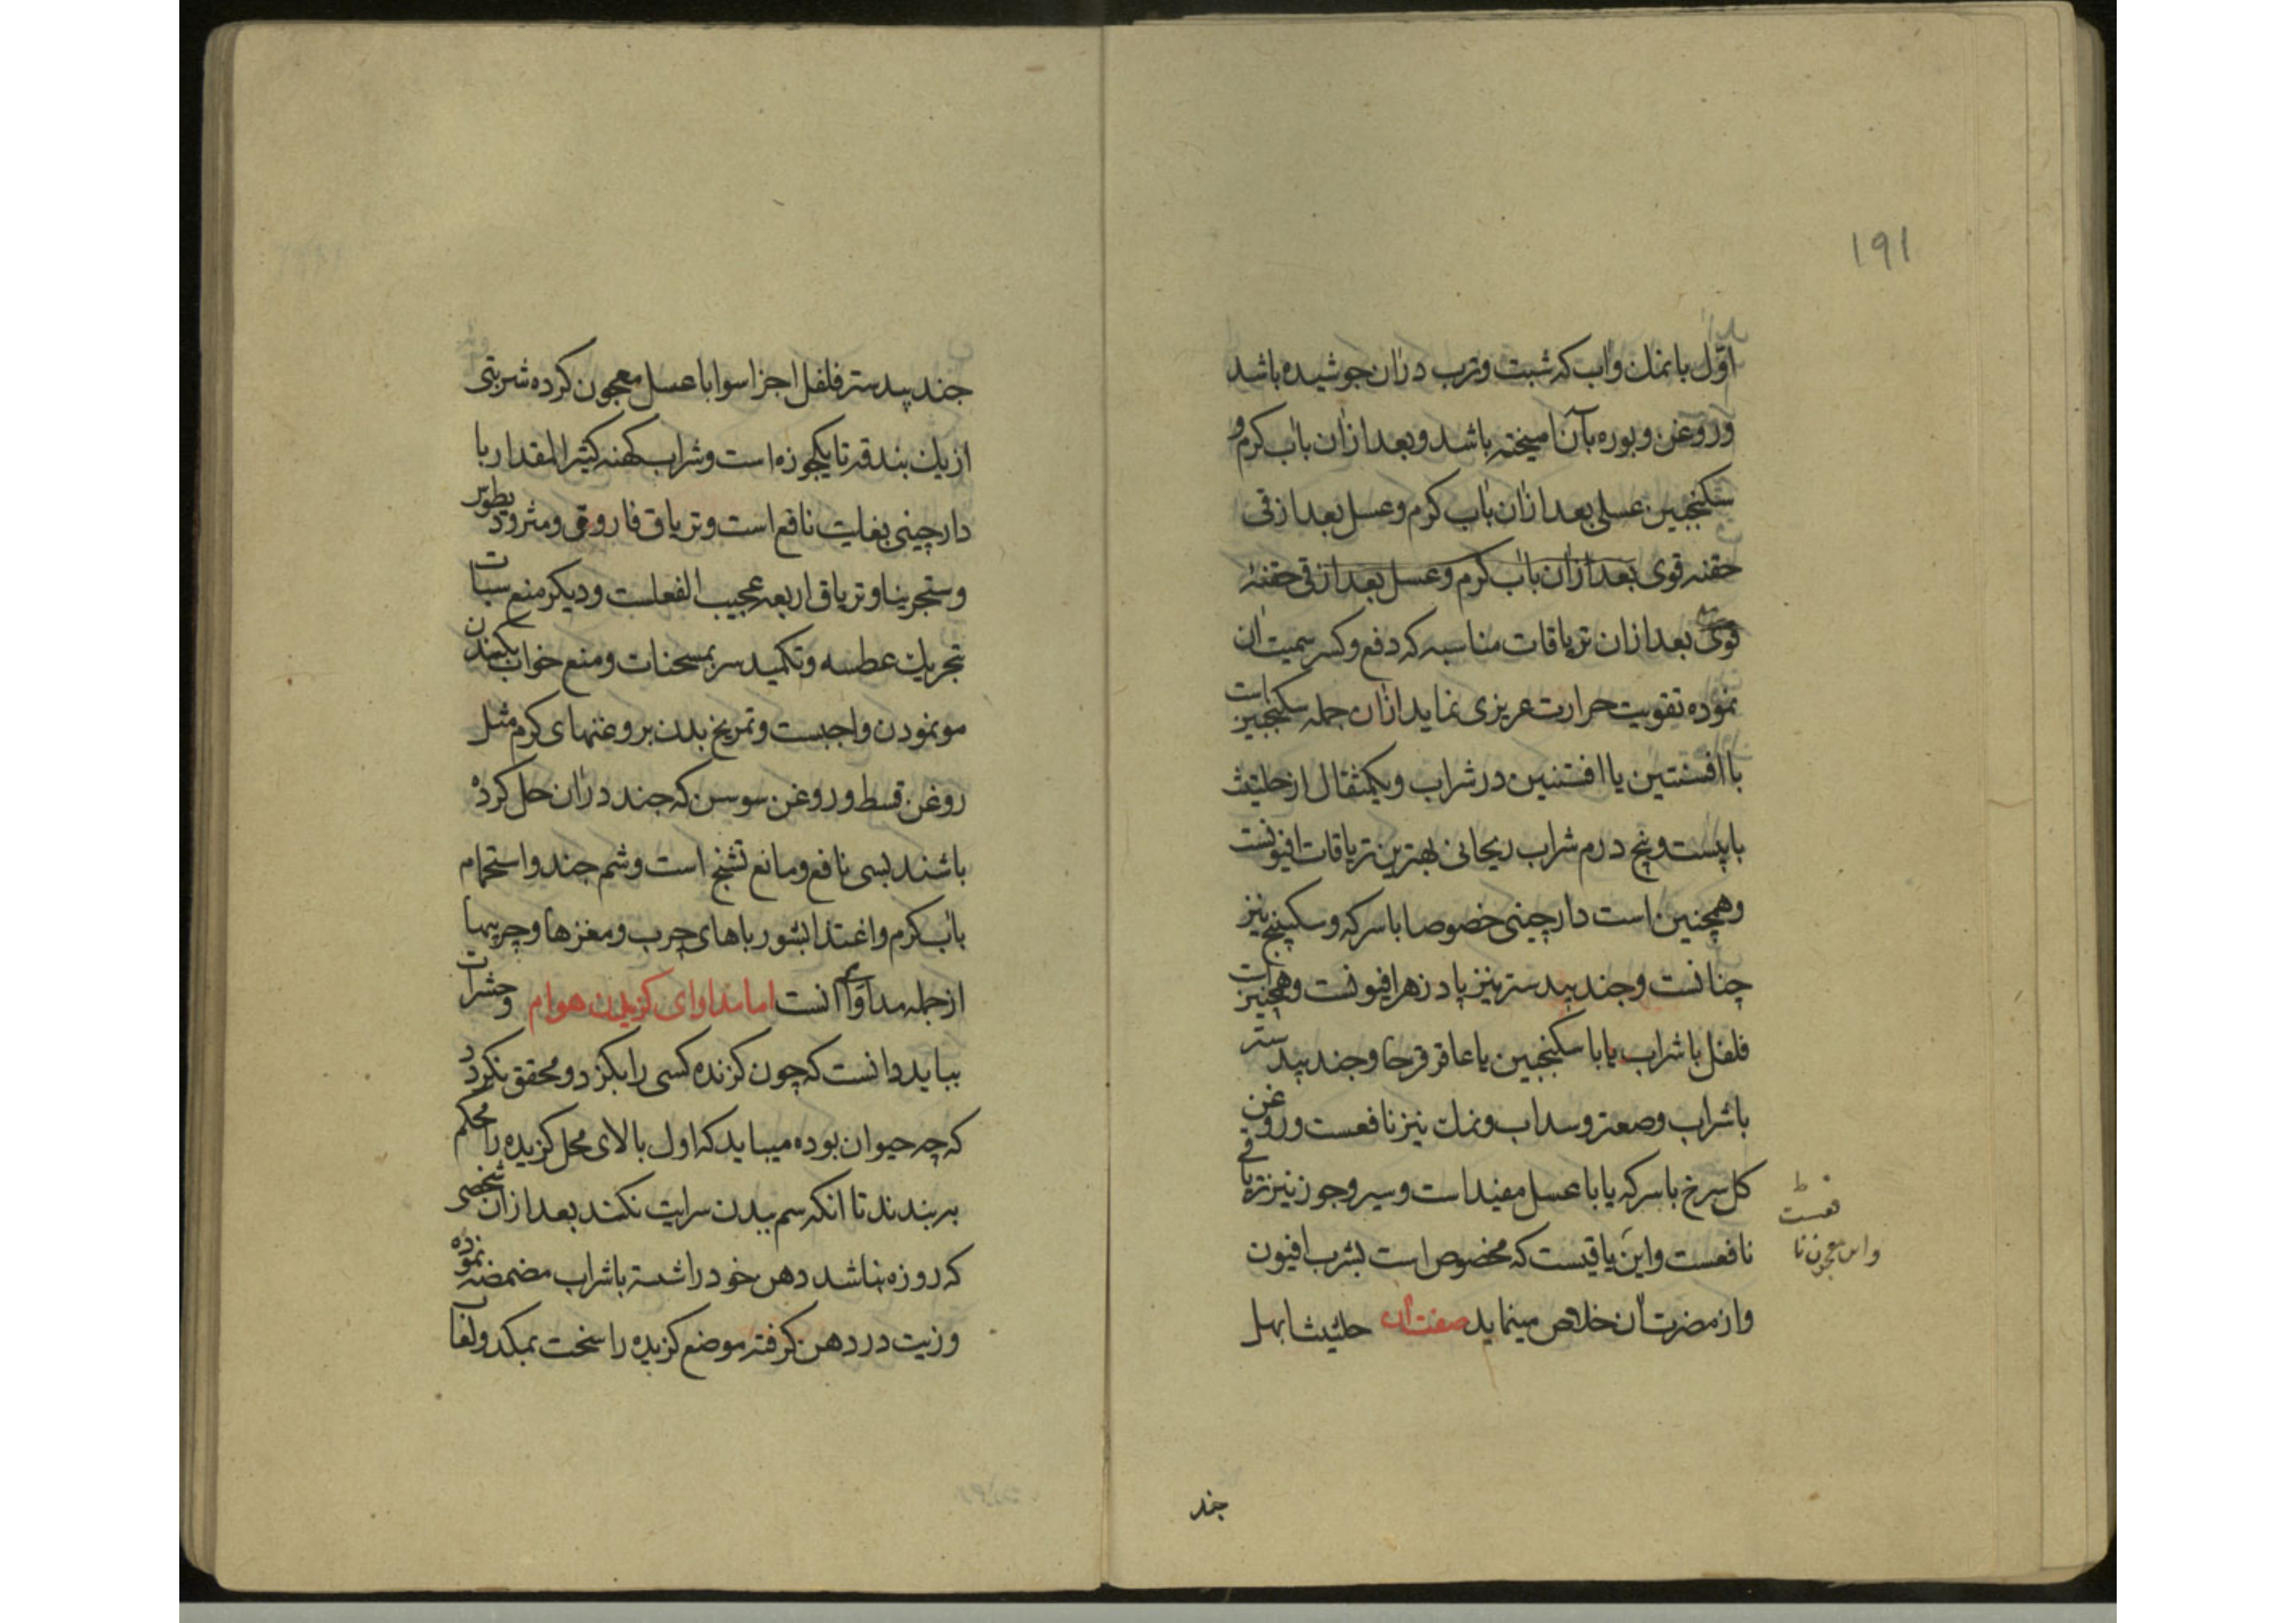 191
اول با نمک واب که شبت وترب دران جوشیده باشد
وروغن وبوره بآن امیخته باشد وبعد ازان باب کرم و
سکنجبین عسلی بعد ازان باب کرم وعسل بعد از قی
حقنه قوی بعد ازان باب کرم وعسل بعد از قی حقنه
قوی بعد ازان تریاقات مناسبه که دفع وکسر سمیت ان
نموده تقویت حرارت عریزی نماید ازان جمله سکنجبین است
با افسنتین یا افستنین در شراب ویکمثقال از حلتیت
با بیست وپنج درم شراب ریحانی بهترین تریاقات افیونست
وهمچنین است دارچینی خصوصا با سرکه وسکبینج نیز
چنانست وجند بیدستر نیز پادزهر افیونست وهمچنین است
فلفل با شراب یا با سکنجبین یا عاقرقرحا وجند بیدستر
با شراب وصعتر وسداب ونمک نیز نافعست وروغن
کل سرخ با سرکه یا با عسل مفید است وسیر وجوز نیز تریاقی
نافعست واین یاقیست که مخصوص است بشرب افیون
واز مضرت ان خلاص مینماید صفت ان حلتیت ابهل
فعست
واین معجون نا
جند
جند بیدستر فلفل اجزا سوا با عسل معجون کرده شربتی
از یک بندقه تا یکجوزه است وشراب کهنه کثیر المقدار با
دارچینی بغایت نافع است وتریاق فاروقی ومثرودیطوس
وسنجرینا وتریاق اربعه عجیب الفعلست ودیکر منع سبات
بتحریک عطسه وتکمید سر بمسخنات ومنع خواب بکندن
مو نمودن واجبست وتمریخ بدن بروغنهای کرم مثل
روغن قسط وروغن سوسن که جند دران حل کرده
باشند بسی نافع ومانع تشنج است وشم جند واستحمام
باب کرم واغتذا بشورباهای چرب ومغزها وچربیها
ازجمله مداوای انست اما مداوای کزیدن هوام وحشرات
بباید دانست که چون کزنده کسی را بکزد ومحقق نکردد
که چه حیوان بوده میباید که اول بالای محل کزیده را محکم
به بندند تا انکه سم ببدن سرایت نکند بعد ازان شخصی
که روزه نباشد دهن خود را شسته باشراب مضمضه نموده
وزیت در دهن کرفته موضع کزیده را سخت بمکد ولعاب